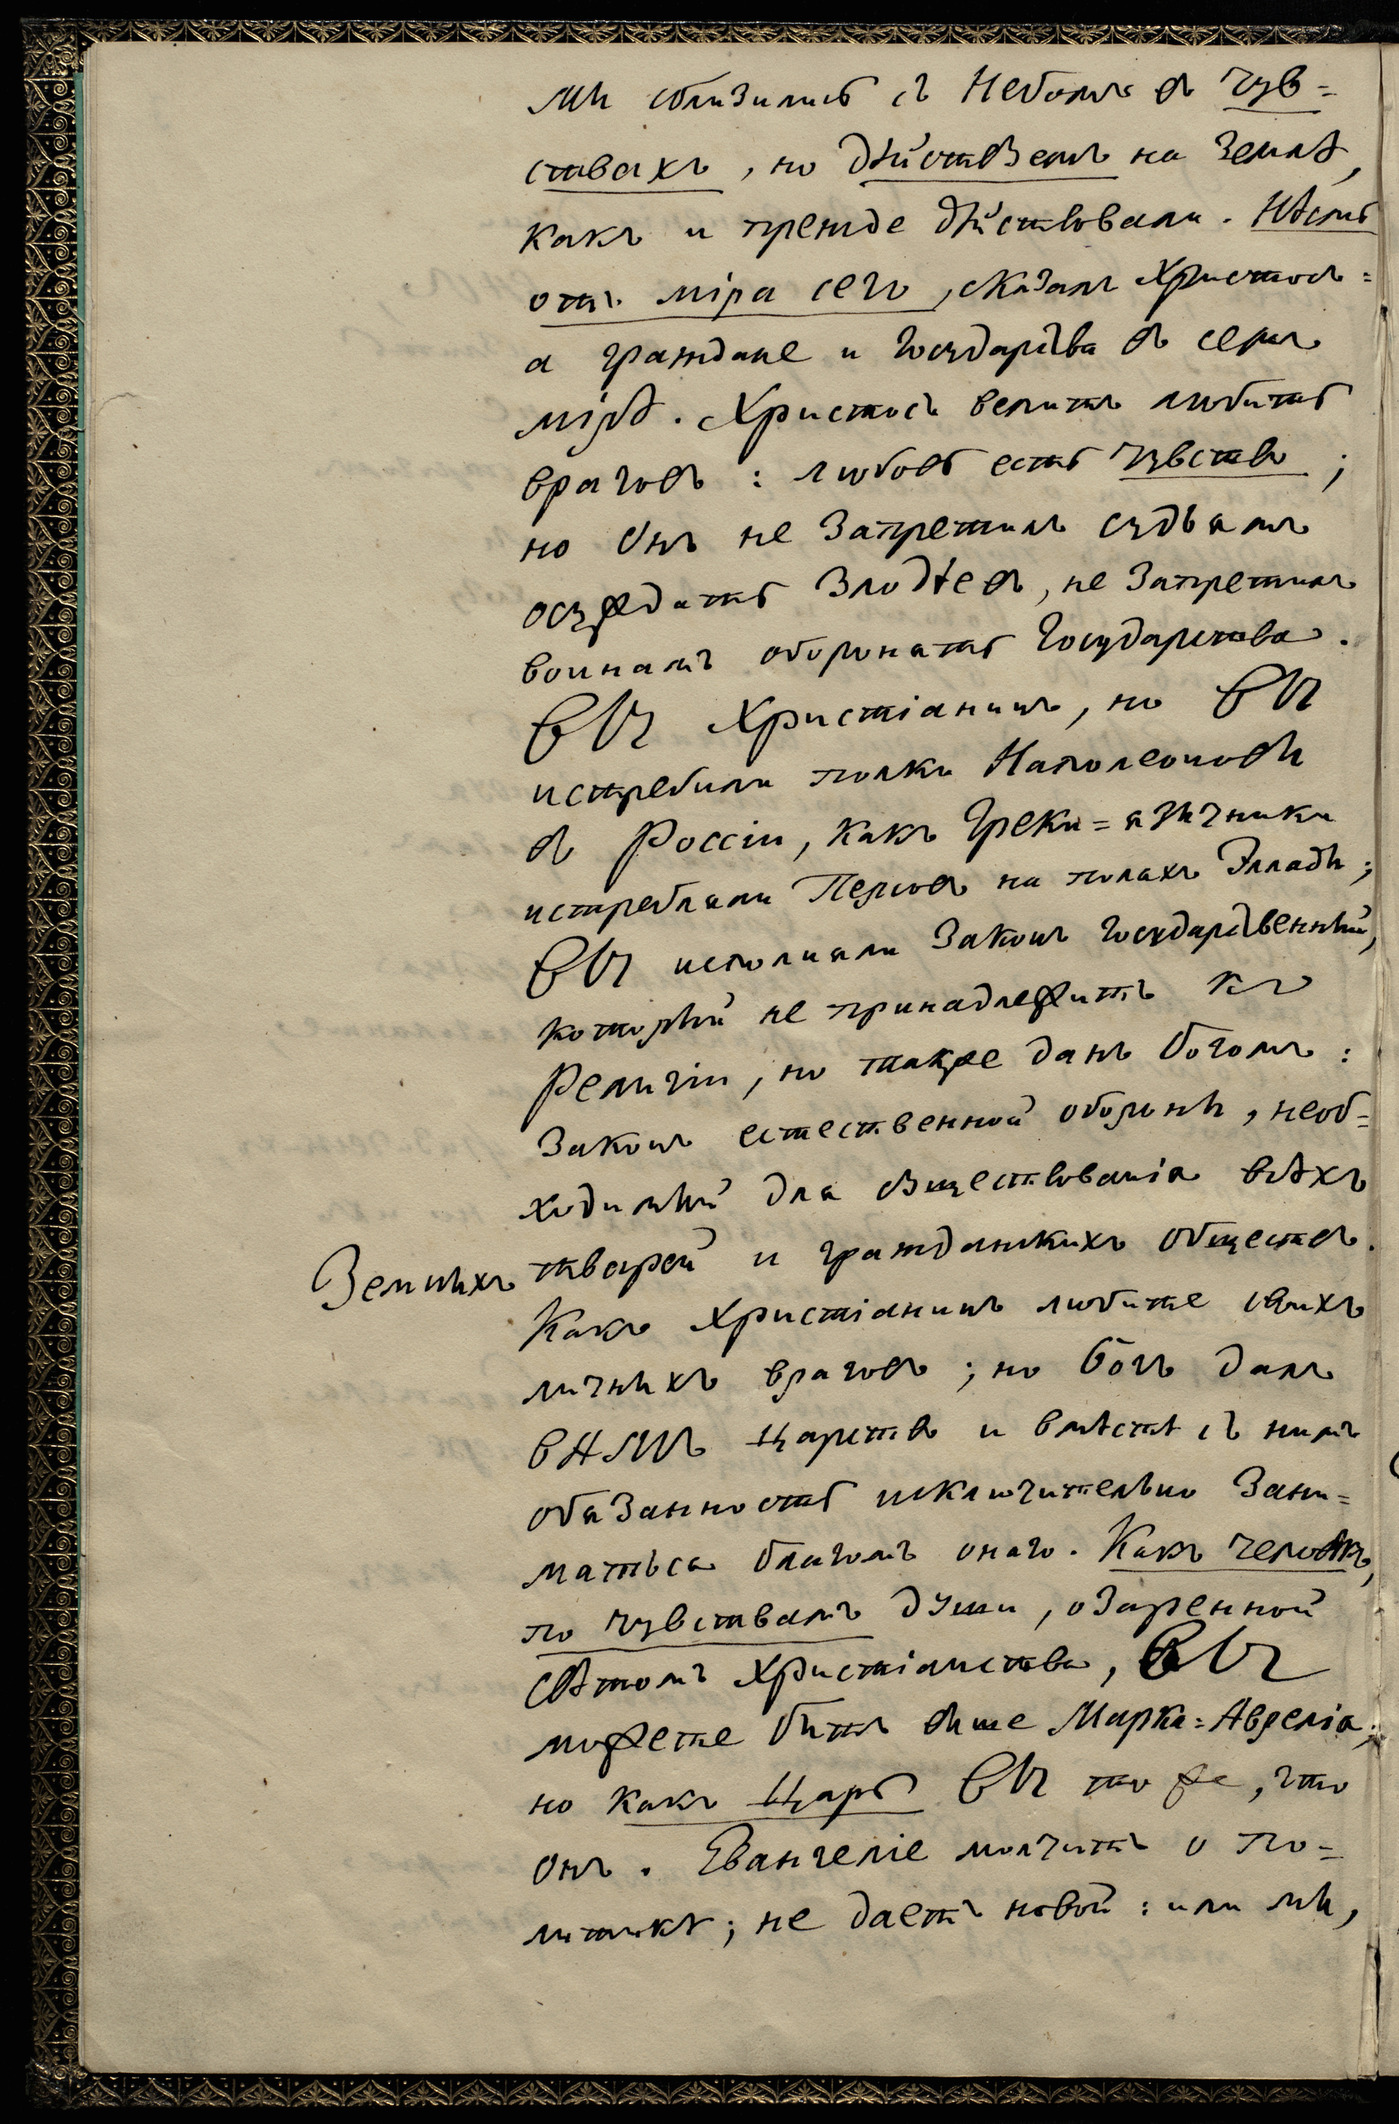 мы сблизились съ Небомъ въ чув=
ствахъ, но дѣйствуемъ на землѣ,
какъ и прежде дѣйствовали. Нѣсмь
отъ міра сего, сказалъ Христосъ=
а граждане и Государства въ семъ
мірѣ. Христосъ велитъ любить
враговъ: любовь есть чувство;
но Онъ не запретилъ судьямъ
осуждать злодѣевъ, не запретилъ
воинамъ оборонять Государства.
ВЫ Христіанинъ, но ВЫ
истребили полки Наполеоновы
въ Россіи, какъ Греки=язычники
истребляли Персовъ на поляхъ Эллады;
ВЫ исполняли законъ Государственный,
который не принадлежитъ къ
Религіи, но также данъ Богомъ:
законъ естественной обороны, необ=
ходимый для существованія всѣхъ
Земныхъ тварей и гражданскихъ обществъ.
Какъ Христіанинъ любите своихъ
личныхъ враговъ; но Богъ далъ
ВАМЪ Царство и вмѣстѣ съ нимъ
обязанность исключительно зани=
маться благомъ онаго. Какъ человѣкъ,
по чувствамъ души, озаренной
свѣтомъ Христіанства, ВЫ
можете быть выше Марка=Аврелія;
но какъ Царь ВЫ то же, что
онъ. Евангеліе молчитъ о По=
литикѣ; не даетъ новой: или мы,